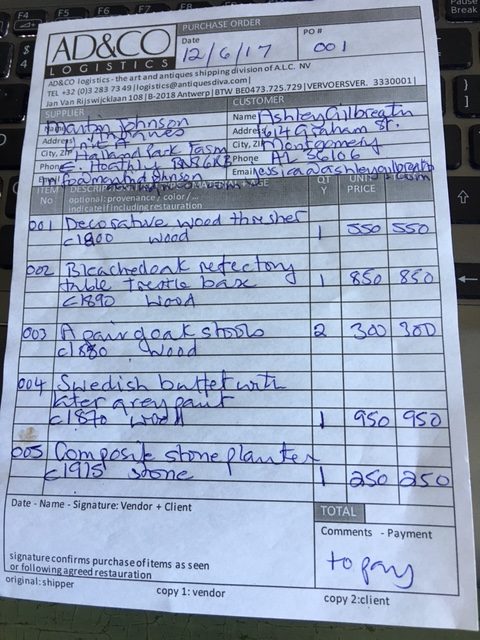 F4 F5 F6 F7 F8
Pause
Break
PURCHASE ORDER
AD&CO
LOGISTICS
Date
12/6/17
PO#
001
AD&CO logistics - the art and antiques shipping division of A.L.C. NV
TEL +32 (0)3 283 73 49|logistics@antiquesdiva.com|
Jan Van Rijswijcklaan 108|B-2018 Antwerp|BTW BE0473.725.729|VERVOERSVER. 3330001|
SUPPLIER
Martin Johnson
Antiques
Address Unit A
City, ZI Halland Park Farm
E. Hoathly
info@martin johnson
CUSTOMER
Name Ashley Gilbreath
Address 614 Graham St.
City, ZI Montgomery
Phone AL 36106
Email jessica@ashleygilbreath
.com
ITEM No
QTY
UNIT PRICE
optional: provenance / color / ...
indicate if including restauration
001 Decorative wood thresher
c1800 wood 1 550 550
002 Bleached oak refectory
table trestle base
c1890 wood 1 850 850
003 A pair of oak stools 2 300 300
c1880 wood
004 Swedish buffet with
later grey paint
c1870 wood 1 950 950
005 Composite stone planter
c1915 stone 1 250 250
Date - Name - Signature: Vendor + Client
TOTAL
Comments - Payment
to pay
signature confirms purchase of items as seen
or following agreed restauration
original: shipper
copy 1: vendor
copy 2:client